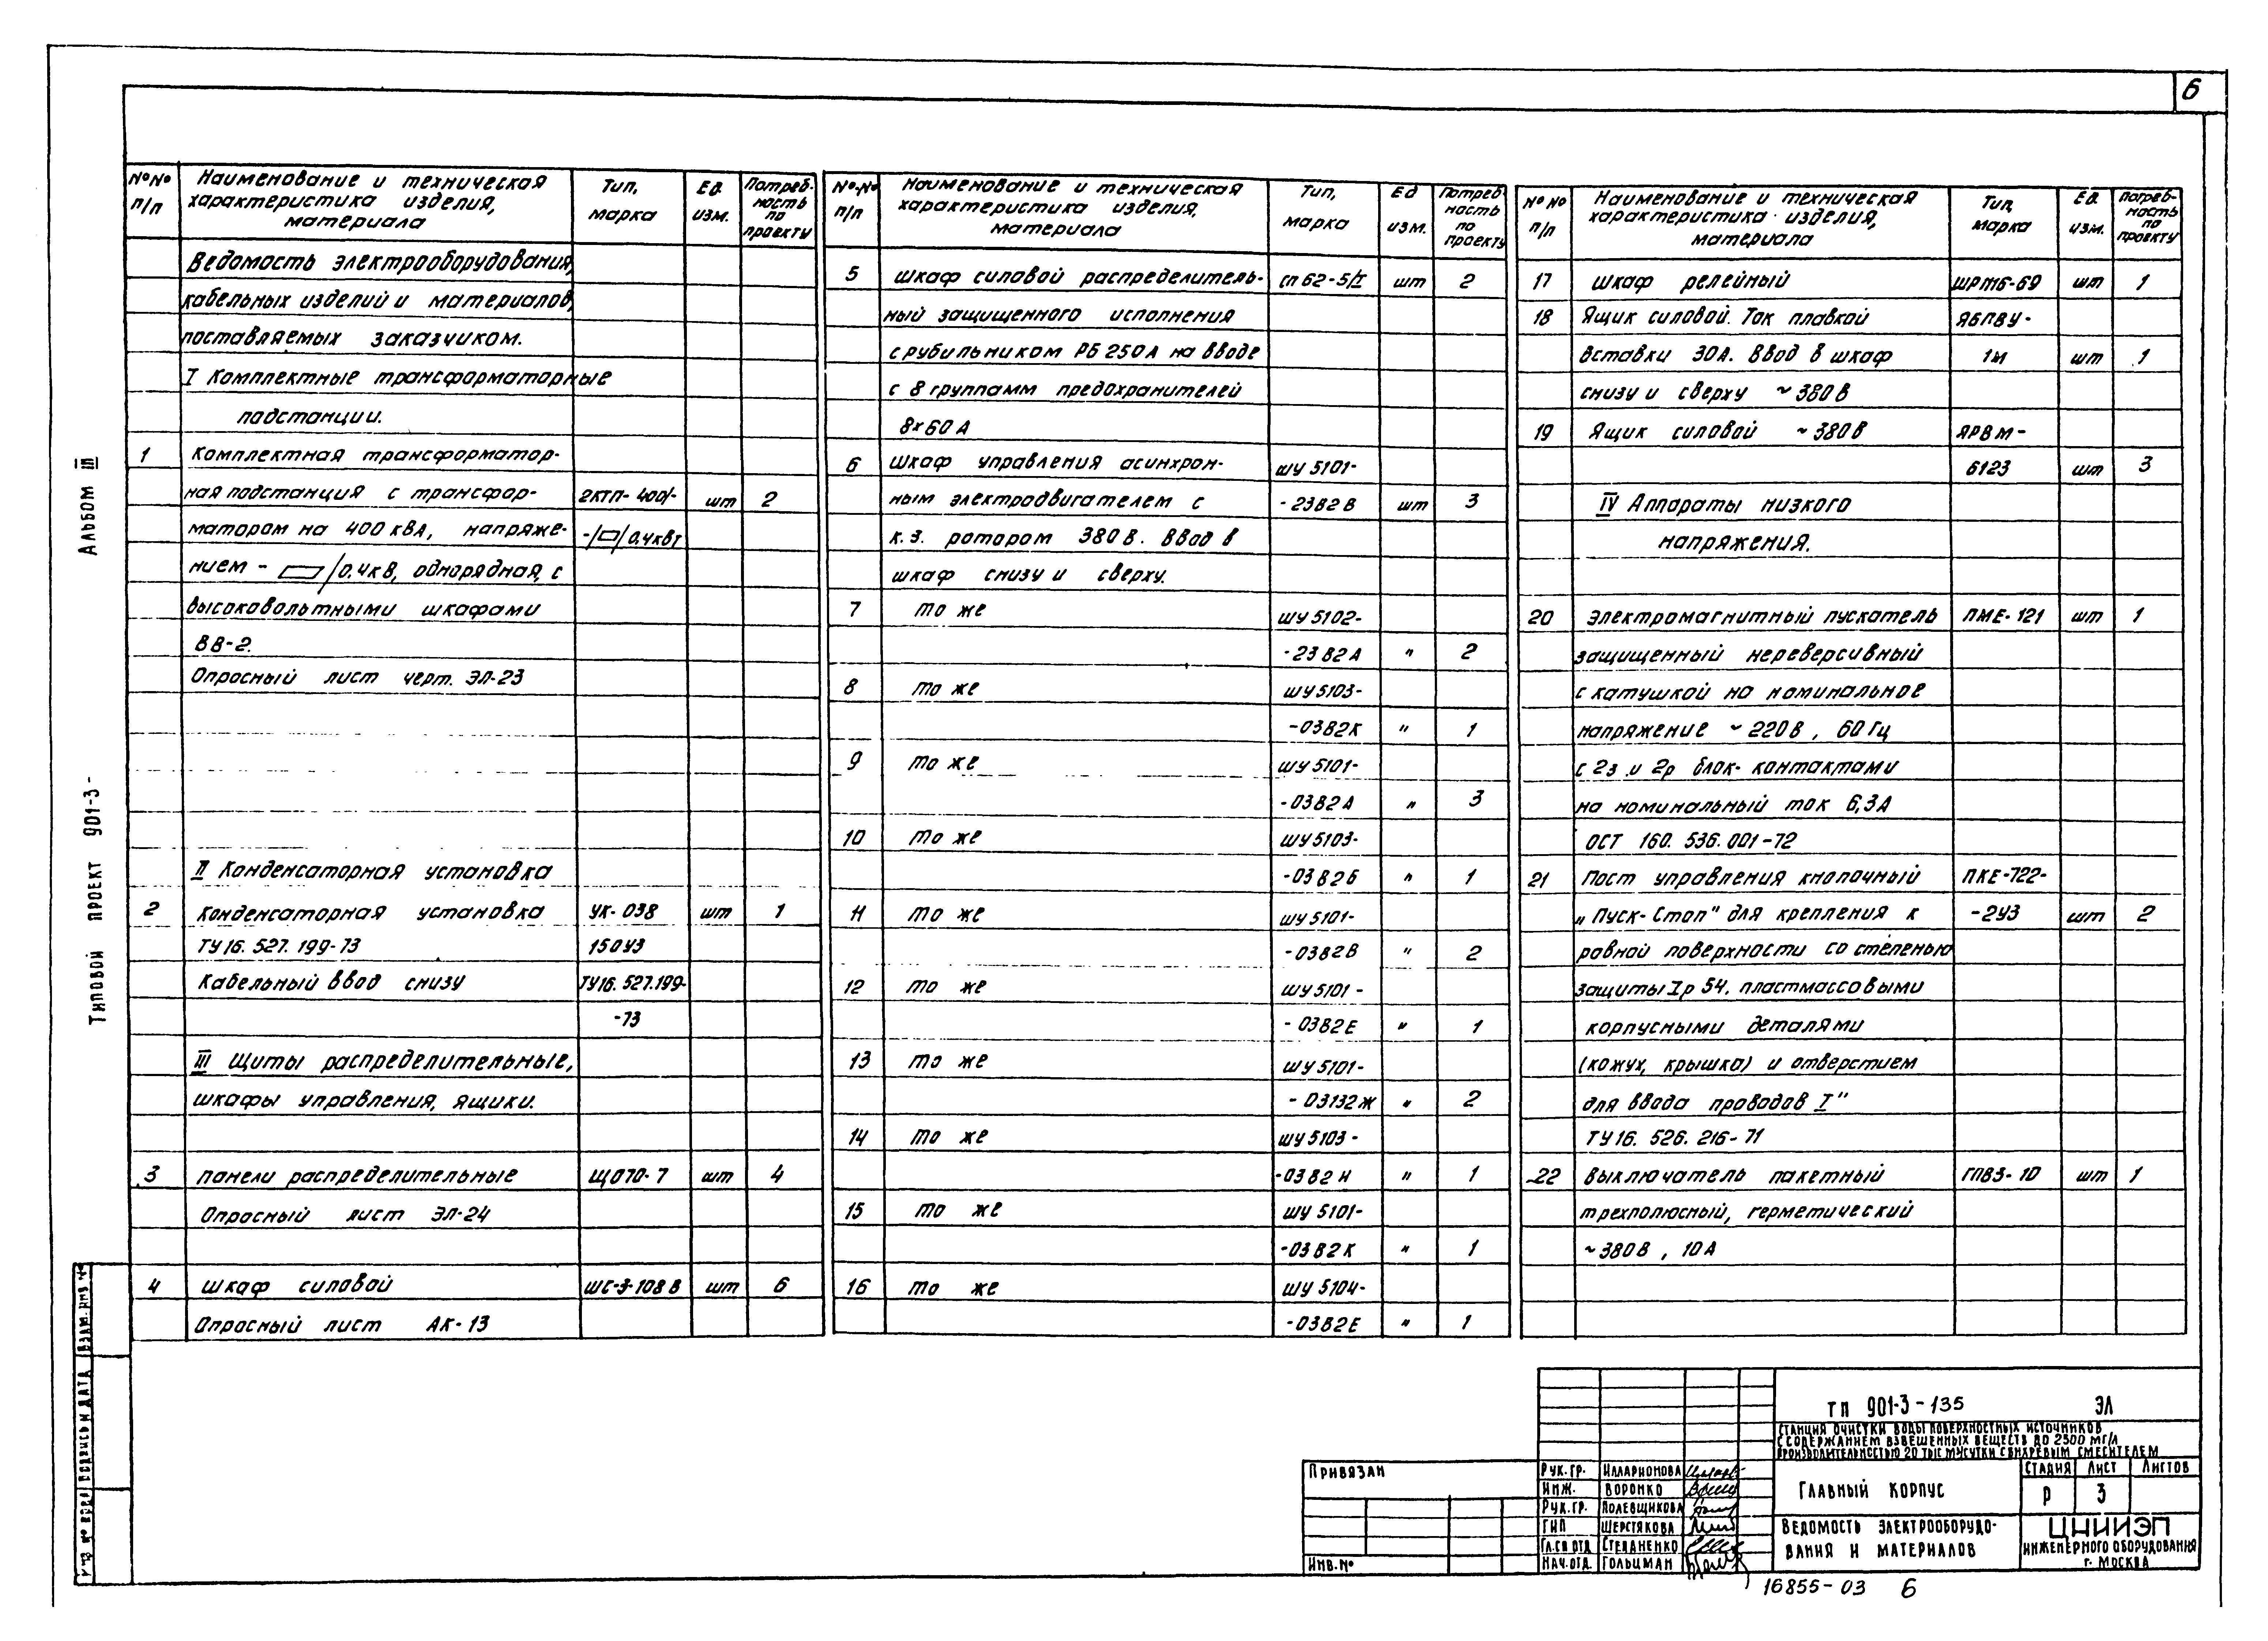 6
Альбом III
Типовой проект 901-3-
№№ п/п
Наименование и техническая характеристика изделия, материала
Тип, марка
Ед. изм.
Потреб-ность по проекту
Ведомость электрооборудования,
кабельных изделий и материалов,
поставляемых заказчиком.
I Комплектные трансформаторные
подстанции.
1 Комплектная трансформатор-
ная подстанция с трансфор- 2КТП-400/- шт 2
матором на 400 кВА, напряже- -/▭/0.4кВт
нием - ▭/0.4кВ, однорядная, с
высоковольтными шкафами
ВВ-2.
Опросный лист черт. ЭЛ-23
II Конденсаторная установка
2 Конденсаторная установка УК-038 шт 1
ТУ16.527.199-73 150У3
Кабельный ввод снизу ТУ16.527.199-
-73
III Щиты распределительные,
шкафы управления, ящики.
3 Панели распределительные ЩО70-7 шт 4
Опросный лист ЭЛ-24
4 Шкаф силовой ШС-3-108В шт 6
Опросный лист АК-13
№№ п/п
Наименование и техническая характеристика изделия, материала
Тип, марка
Ед изм.
Потреб ность по проекту
5 Шкаф силовой распределитель- СП62-5/I шт 2
ный защищенного исполнения
с рубильником РБ 250А на вводе
с 8 группамм предохранителей
8×60А
6 Шкаф управления асинхрон- ШУ5101-
ным электродвигателем с -23В2В шт 3
к.з. ротором 380В. Ввод в
шкаф снизу и сверху.
7 то же ШУ5102-
-23В2А " 2
8 то же ШУ5103-
-03В2К " 1
9 то же ШУ5101-
-03В2А " 3
10 то же ШУ5103-
-03В2Б " 1
11 то же ШУ5101-
-03В2В " 2
12 то же ШУ5101-
-03В2Е " 1
13 то же ШУ5101-
-03132Ж " 2
14 то же ШУ5103-
-03В2И " 1
15 то же ШУ5101-
-03В2К " 1
16 то же ШУ5104-
-03В2Е " 1
№№ п/п
Наименование и техническая характеристика изделия, материала
Тип, марка
Ед. изм.
Потреб-ность по проекту
17 Шкаф релейный ШРП16-69 шт 1
18 Ящик силовой. Ток плавкой ЯБПВУ-
вставки 30А. Ввод в шкаф 1М шт 1
снизу и сверху ~380В
19 Ящик силовой ~380В ЯРВМ-
6123 шт 3
IV Аппараты низкого
напряжения.
20 Электромагнитный пускатель ПМЕ-121 шт 1
защищенный нереверсивный
с катушкой на номинальное
напряжение ~220В, 60Гц
с 2з и 2р блок-контактами
на номинальный ток 6,3А
ОСТ 160.536.001-72
21 Пост управления кнопочный ПКЕ-722-
„Пуск-Стоп" для крепления к -2У3 шт 2
ровной поверхности со степенью
защиты Iр 54. пластмассовыми
корпусными деталями
(кожух, крышка) и отверстием
для ввода проводов I"
ТУ16.526.216-71
22 Выключатель пакетный ГПВ3-10 шт 1
трехполюсный, герметический
~380В, 10А
Подпись и дата
ТП 901-3-135 ЭЛ
Станция очистки воды поверхностных источников
с содержанием взвешенных веществ до 2500 мг/л
производительностью 20 тыс м³/сутки с вихревым смесителем
Привязан
Инв.№
Рук.гр. Илларионова
Инж. Воронко
Рук.гр. Полевщикова
ГИП Шерстякова
Гл.сп.отд Степаненко
Нач.отд. Гольцман
Главный корпус
Стадия Лист Листов
Р 3
Ведомость электрооборудо-
вания и материалов
ЦНИИЭП
инженерного оборудования
г. Москва
16855-03 6